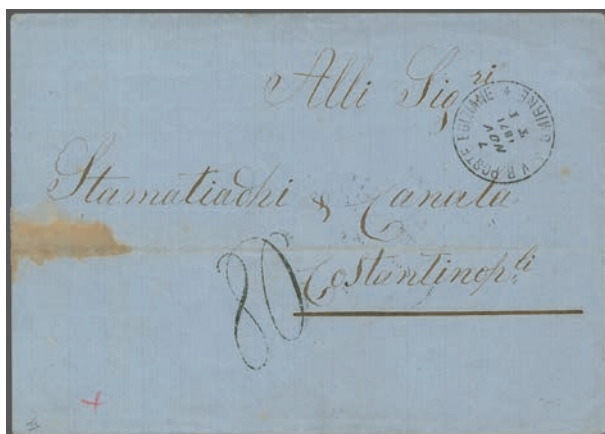 Alli Sigri
V. R. POSTE EGIZIANE
SMIRNE
7
NOV
1871
Stamatiadhi & Canala
80
Costantinopli